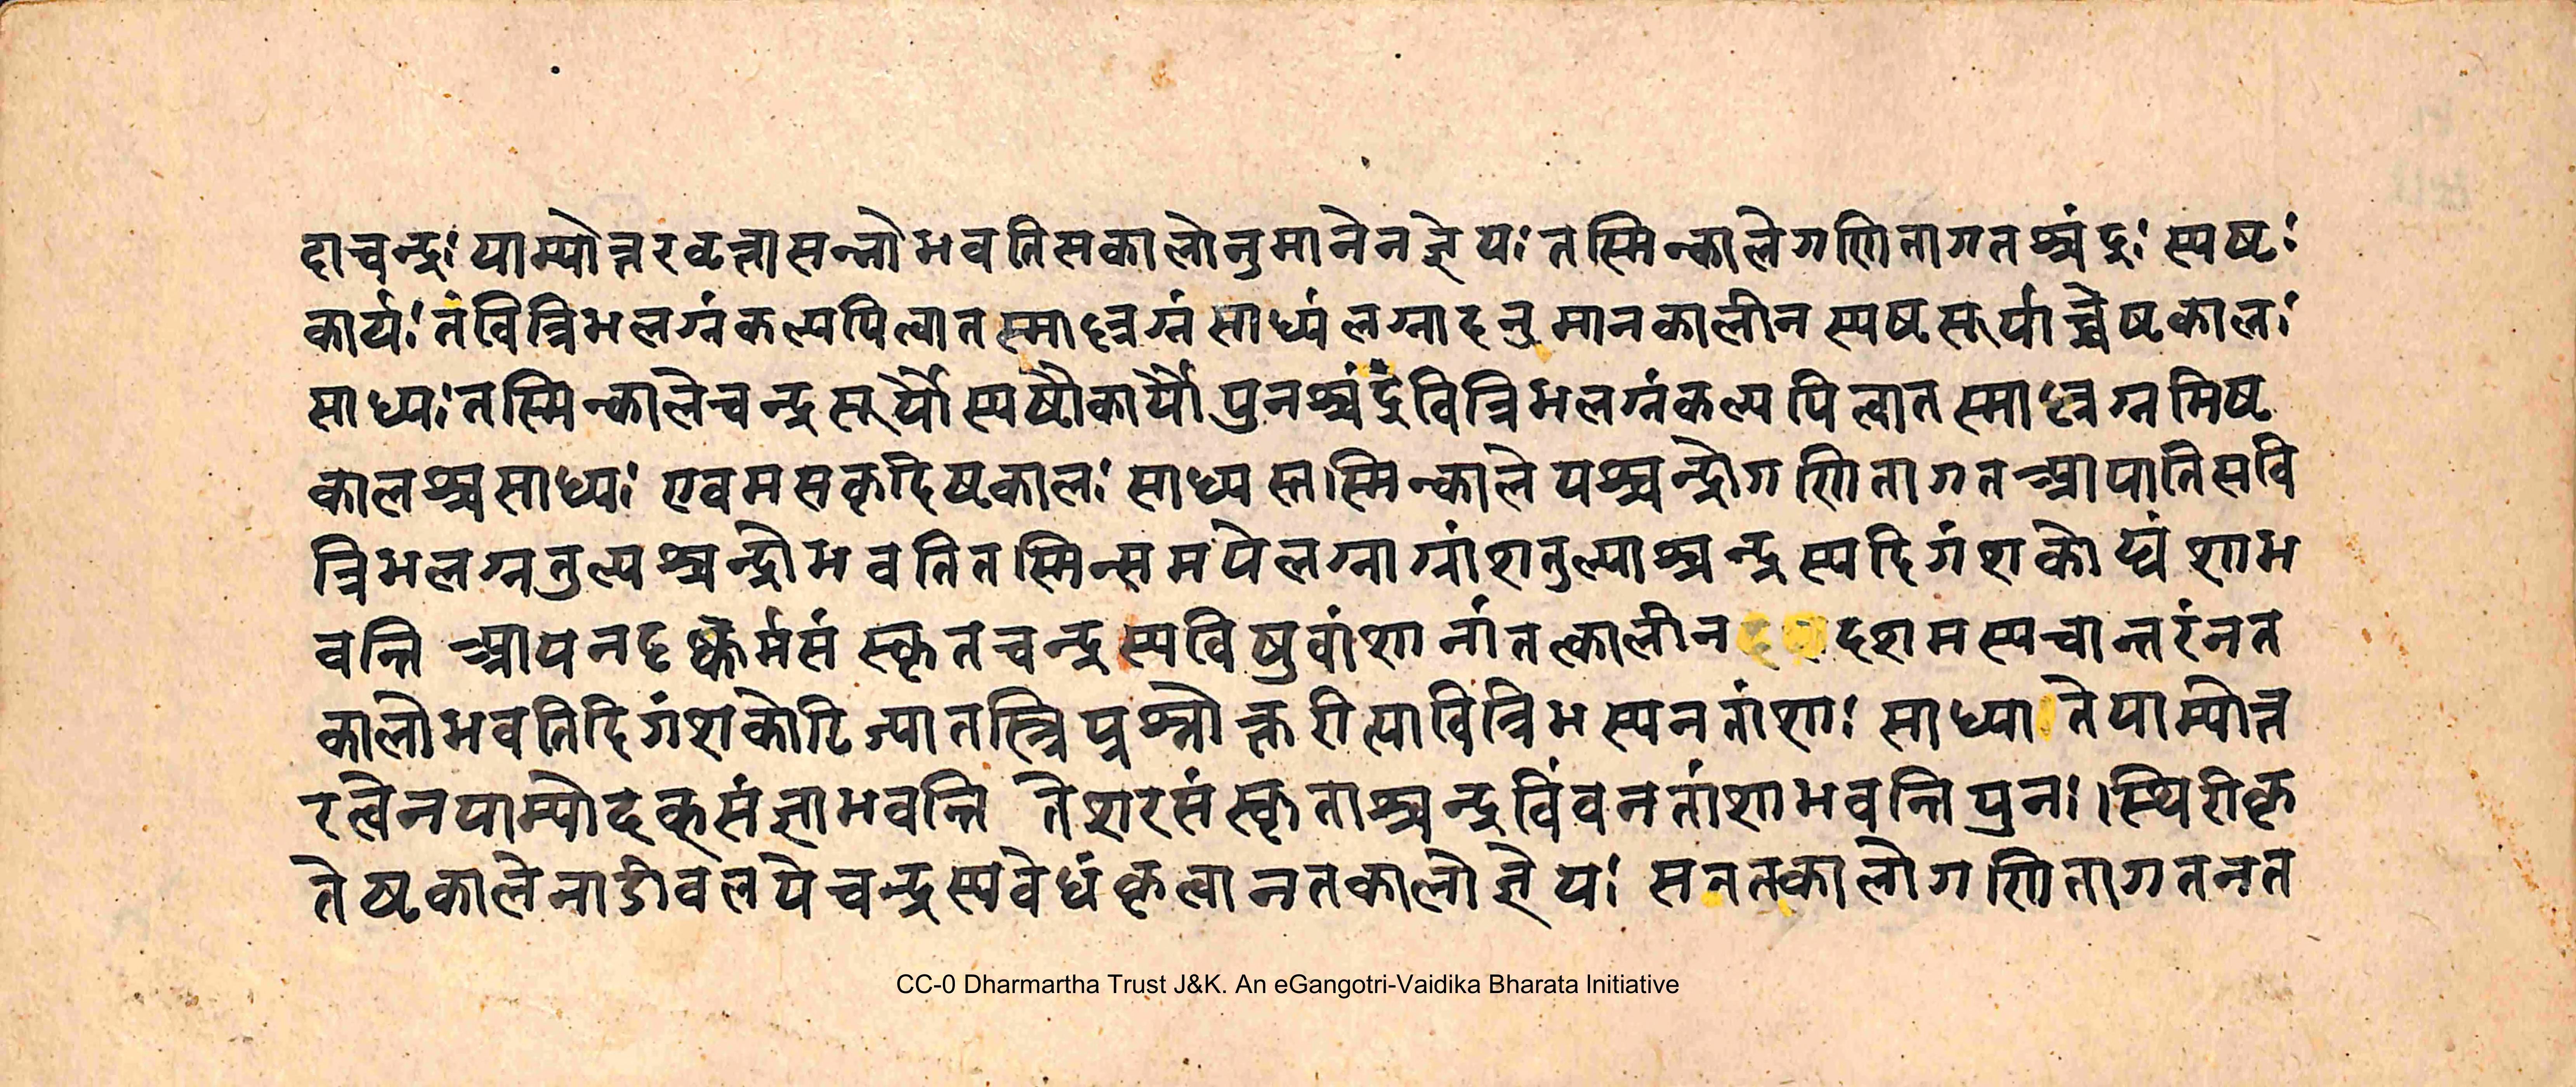 दाचन्द्रः याम्योत्तरवृत्तासन्नो भवतिसकालोनुमानेनज्ञेयः तस्मिन्कालेगणितागतश्चंद्रः स्पष्टः
कार्यः तंवित्रिभलग्नंकल्पयित्वातस्माल्लग्नं साध्यं लग्नादनुमानकालीन स्पष्टसूर्याच्चेष्टकालः
साध्यः तस्मिन्कालेचन्द्रसूर्यौस्पष्टौकार्यौ पुनश्चंद्रंवित्रिभलग्नंकल्पयित्वातस्माल्लग्नमिष्ट
कालश्चसाध्यः एवमसकृदिष्टकालः साध्यस्तस्मिन्काले यश्चन्द्रोगणितागतआयातिसवि
त्रिभलग्नतुल्यश्चन्द्रोभवतितस्मिन्समयेलग्नाग्रांशतुल्याश्चन्द्रस्यदिगंशकोट्यंशाभ
वन्ति आयनदृक्कर्मसंस्कृतचन्द्रस्यविषुवांशानांतत्कालीन दशमस्यचान्तरंनत
कालोभवतिदिगंशकोटिज्यातस्त्रिप्रश्नोक्तरीत्यावित्रिभस्यनतांशाः साध्या तेयाम्योत्त
रत्वेनयाम्योदक्संज्ञाभवन्ति तेशरसंस्कृताश्चन्द्रविंवनतांशाभवन्तिपुनः।स्थिरीकृ
तेष्टकालेनाडीवलयेचन्द्रस्यवेधंकृत्वानतकालोज्ञेयः सनतकालोगणितागतनत
CC-0 Dharmartha Trust J&K. An eGangotri-Vaidika Bharata Initiative